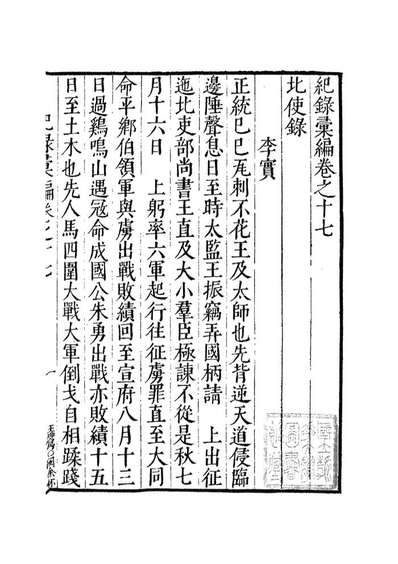 紀錄彙編卷之十七
北使錄
李實
正統己巳瓦刺不花王及太師也先背逆天道侵臨
邊陲聲息日至時太監王振竊弄國柄請　上出征
迤北吏部尚書王直及大小羣臣極諫不從是秋七
月十六日　上躬率六軍起行往征虜罪直至大同
命平鄉伯領軍與虜出戰敗績回至宣府八月十三
日過鷄鳴山遇冦命成國公朱勇出戰亦敗績十五
日至土木也先人馬四圍大戰大軍倒戈自相蹂踐
紀錄彙編卷之十七
一